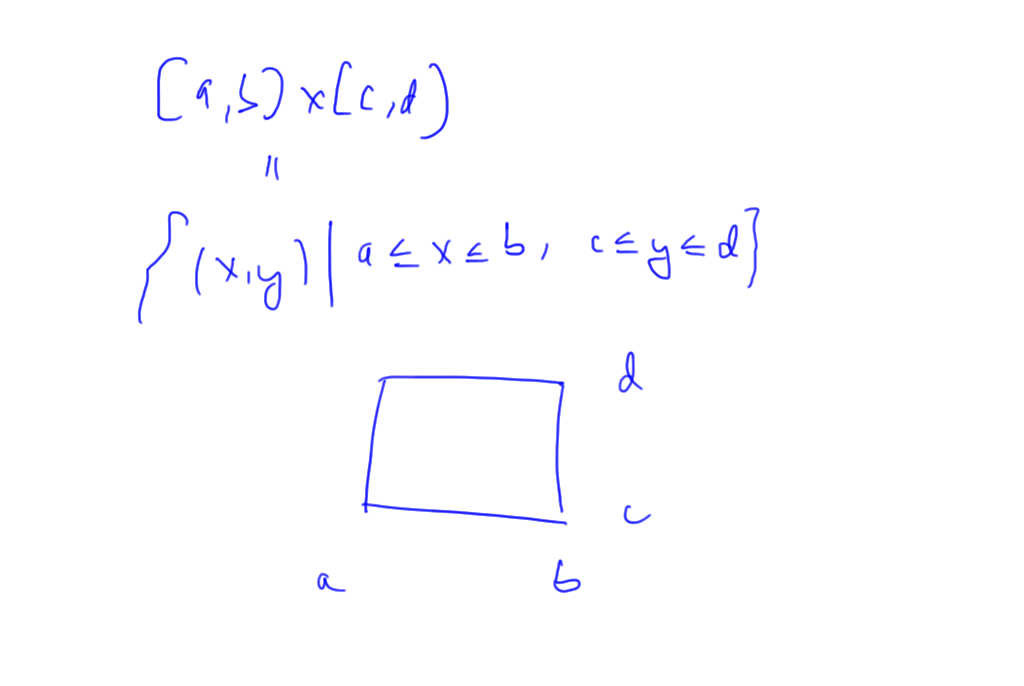 [a,b]x[c,d]
=
{(x,y)|a≤x≤b, c≤y≤d}
d
c
a b